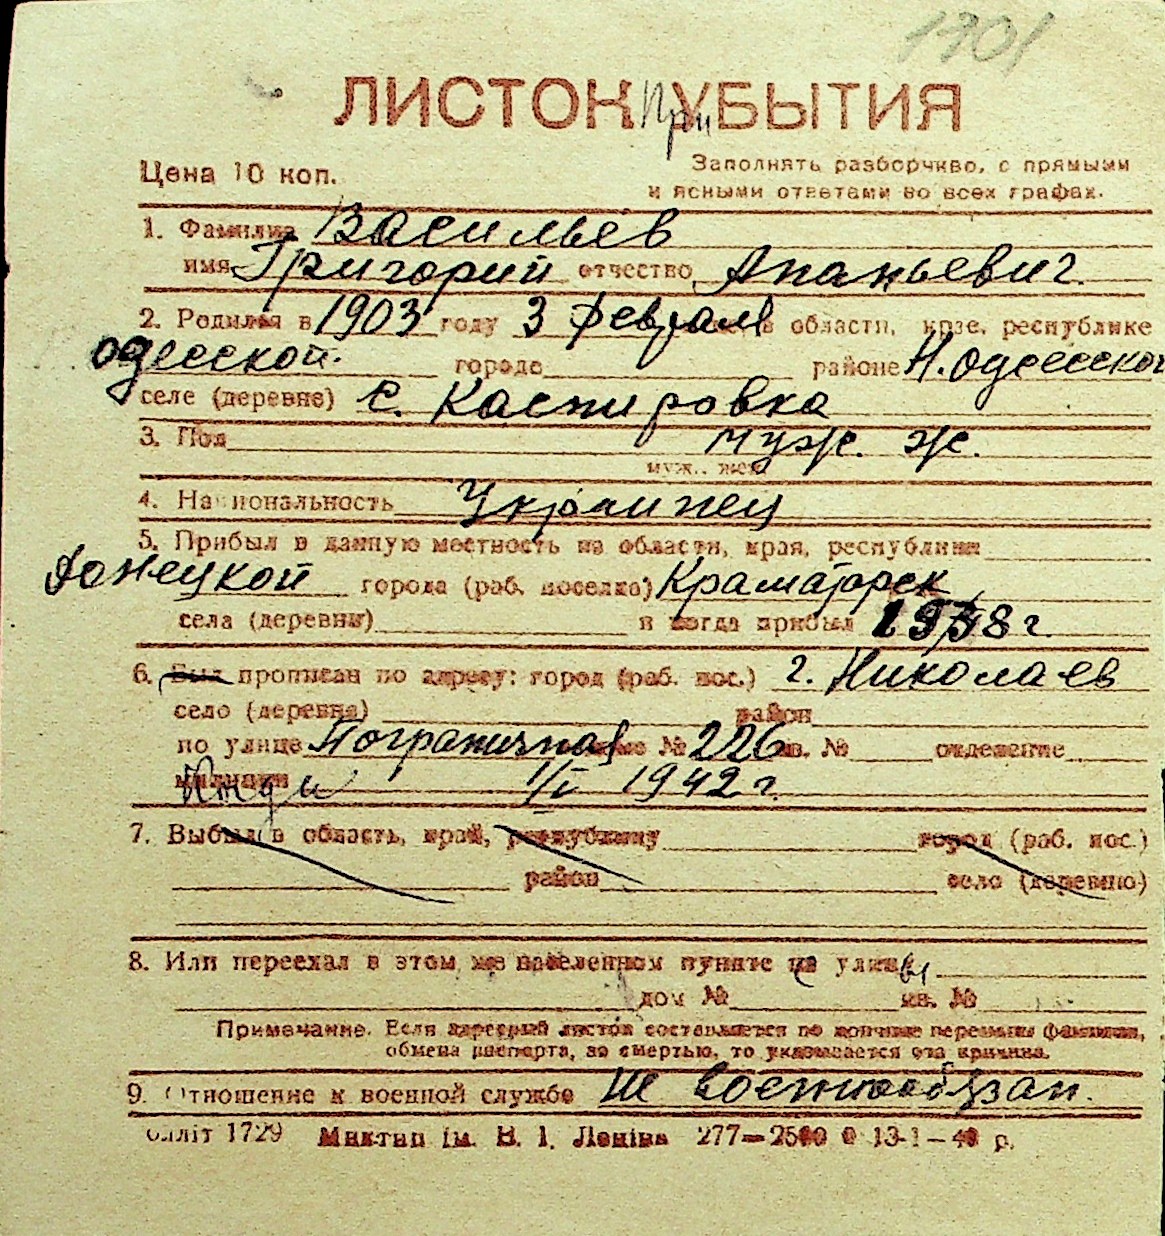 1701
ЛИСТОК При УБЫТИЯ
Цена 10 коп.
Заполнять разборчиво, с прямыми
и ясными ответами во всех графах.
1. Фамилия Васильев
имя Григорий отчество Ананьевич
2. Родился в 1903 году 3 февраля в области, крае, республике
одесской городе районе Н. Одесской
селе (деревне) с. Каспировка
3. Пол муж. ж.
муж., жен.
4. Национальность Украинец
5. Прибыл в данную местность из области, края, республики
Донецкой города (раб. поселка) Краматорск
села (деревни) и когда прибыл 1938 г.
6. Был прописан по адресу: город (раб. пос.) г. Николаев
село (деревня) район
по улице Пограничная № 226 кв. № отделение
милиции 1/I 1942 г.
7. Выбыл в область, край, республику город (раб. пос.)
район село (деревню)
8. Или переехал в этом же населенном пункте на улицы
дом № кв. №
Примечание. Если адресный листок составляется по причине перемены фамилии,
обмена паспорта, за смертью, то указывается эта причина.
9. Отношение к военной службе военнообязан.
олліт 1729 Миктип ім. В. І. Леніна 277—2500 13-1—40 р.